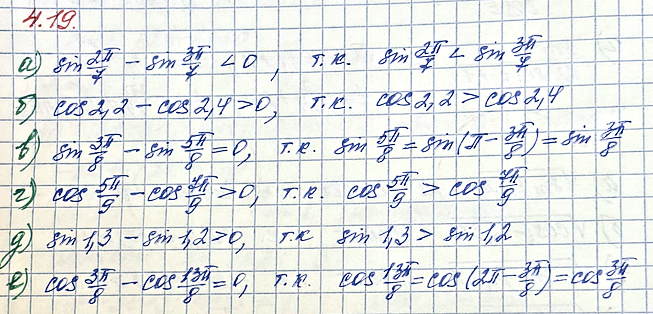 4.19.
а) sin 2π/7 − sin 3π/7 < 0, т.к. sin 2π/7 < sin 3π/7
б) cos 2,2 − cos 2,4 > 0, т.к. cos 2,2 > cos 2,4
в) sin 3π/8 − sin 5π/8 = 0, т.к. sin 5π/8 = sin(π − 3π/8) = sin 3π/8
г) cos 5π/9 − cos 7π/9 > 0, т.к. cos 5π/9 > cos 7π/9
д) sin 1,3 − sin 1,2 > 0, т.к sin 1,3 > sin 1,2
е) cos 3π/8 − cos 13π/8 = 0, т.к. cos 13π/8 = cos(2π − 3π/8) = cos 3π/8